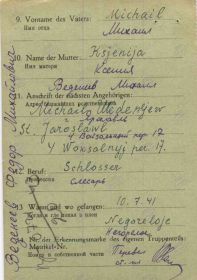 9. Vorname des Vaters: Michail
Имя отца Михаил
10. Name der Mutter: Ksjenija
Имя матери Ксения
Веденеев Михаил
11. Anschrift der nächsten Angehörigen:
Адрес ближайших родственников
Michailo Wedenjew
г. Ярославль
St. Jaroslawl
4 Вокзальный пер 17
4 Woksalnyj per. 17.
12. Beruf: Schlosser
Профессия слесарь
13. Wann und wo gefangen: 10.7.41
Когда где взят в плен
Negoreloje
Негорелое
Nr. der Erkennungsmarke des eigenen Truppenteils:
Номер в собственной части
Веденеев Федор Михайлович